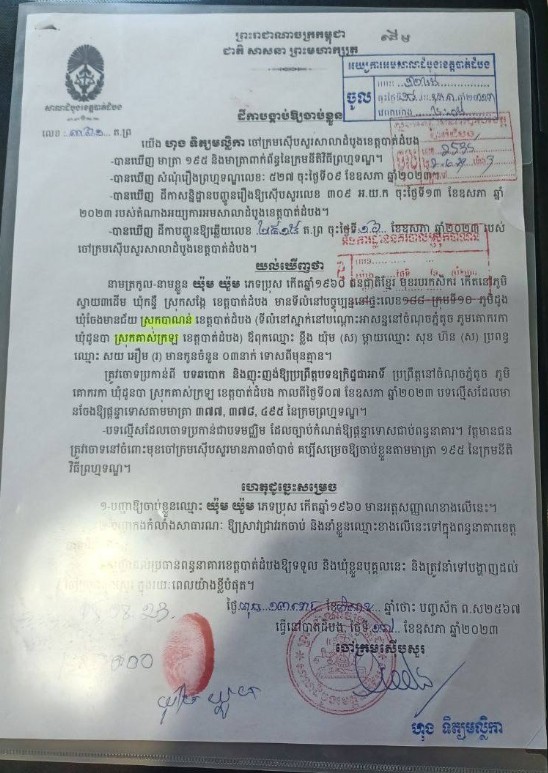 ព្រះរាជាណាចក្រកម្ពុជា
ជាតិ សាសនា ព្រះមហាក្សត្រ
អយ្យការអមសាលាដំបូងខេត្តបាត់ដំបង
ចូល
សាលាដំបូងខេត្តបាត់ដំបង
លេខ : ត.ព្រ
ដីកាបង្គាប់ឱ្យចាប់ខ្លួន
យើង ហុង ទិត្យមល្លិកា ចៅក្រមស៊ើបសួរសាលាដំបូងខេត្តបាត់ដំបង
-បានឃើញ មាត្រា ១៩៥ និងមាត្រាពាក់ព័ន្ធនៃក្រមនីតិវិធីព្រហ្មទណ្ឌ។
-បានឃើញ សំណុំរឿងព្រហ្មទណ្ឌលេខ: ៥២៧ ចុះថ្ងៃទី០៩ ខែឧសភា ឆ្នាំ២០២៣។
-បានឃើញ ដីកាសន្និដ្ឋានបញ្ជូនរឿងឱ្យស៊ើបសួរលេខ ៣០៩ អ.យ.ក ចុះថ្ងៃទី១៣ ខែឧសភា ឆ្នាំ
២០២៣ របស់តំណាងអយ្យការអមសាលាដំបូងខេត្តបាត់ដំបង។
-បានឃើញ ដីកាបញ្ជូនឱ្យឆ្លើយលេខ ត.ព្រ ចុះថ្ងៃទី ខែឧសភា ឆ្នាំ២០២៣ របស់
ចៅក្រមស៊ើបសួរសាលាដំបូងខេត្តបាត់ដំបង។
យល់ឃើញថា
នាមត្រកូល-នាមខ្លួន ឃុំម ឃុំម ភេទប្រុស កើតឆ្នាំ១៩៦០ ជនជាតិខ្មែរ មុខរបរកសិករ កើតនៅភូមិ
ស្វាយ៣ដើម ឃុំកន្ទឺ ស្រុកសង្កែ ខេត្តបាត់ដំបង មានទីលំនៅបច្ចុប្បន្ននៅផ្ទះលេខ១៨៨ ក្រុមទី១០ ភូមិដូង
ឃុំចែងមានជ័យ ស្រុកបាណន់ ខេត្តបាត់ដំបង (ទីលំនៅស្នាក់នៅបណ្ដោះអាសន្ននៅចំណុចភ្នំតូច ភូមគោករកា
ឃុំដូនបា ស្រុកគាស់ក្រឡ ខេត្តបាត់ដំបង) ឪពុកឈ្មោះ ឃុំម (ស) ម្ដាយឈ្មោះ សុខ ហ៊ន (ស) ប្រពន្ធ
ឈ្មោះ សយ អឿម (រ) មានកូនចំនួន ០៣នាក់ ទោសពីមុនគ្មាន។
ត្រូវចោទប្រកាន់ពី បទឆបោក និងញុះញង់ឱ្យប្រព្រឹត្តបទឧក្រិដ្ឋជាអាទិ៍ ប្រព្រឹត្តនៅចំណុចភ្នំតូច ភូមិ
គោករកា ឃុំដូនបា ស្រុកគាស់ក្រឡ ខេត្តបាត់ដំបង កាលពីថ្ងៃទី០៧ ខែឧសភា ឆ្នាំ២០២៣ បទល្មើសដែល
មានចែងឱ្យផ្ដន្ទាទោសតាមមាត្រា ៣៧៧, ៣៧៨, ៤៩៥ នៃក្រមព្រហ្មទណ្ឌ។
-បទល្មើសដែលចោទប្រកាន់ជាបទមជ្ឈិម ដែលច្បាប់កំណត់ឱ្យផ្ដន្ទាទោសជាប់ពន្ធនាគារ។ វត្តមានជន
ត្រូវចោទនៅចំពោះមុខចៅក្រមស៊ើបសួរមានភាពចាំបាច់ គប្បីសម្រេចឱ្យចាប់ខ្លួនតាមមាត្រា ១៩៥ នៃក្រមនីតិ
វិធីព្រហ្មទណ្ឌ។
ហេតុដូច្នេះសម្រេច
១-បញ្ជាឱ្យចាប់ខ្លួនឈ្មោះ ឃុំម ឃុំម ភេទប្រុស កើតឆ្នាំ១៩៦០ មានអត្តសញ្ញាណខាងលើនេះ។
កងកម្លាំងសាធារណៈ ឱ្យស្រាវជ្រាវរកចាប់ និងនាំខ្លួនឈ្មោះខាងលើនេះទៅក្នុងពន្ធនាគារខេត្ត
ប្រធានពន្ធនាគារខេត្តបាត់ដំបងឱ្យទទួល និងឃុំខ្លួនបុគ្គលនេះ និងត្រូវនាំទៅបង្ហាញដល់
ក្នុងរយៈពេលយ៉ាងខ្លីបំផុត។
ថ្ងៃ ខែ ឆ្នាំថោះ បញ្ចស័ក ព.ស២៥៦៧
ធ្វើនៅបាត់ដំបង, ថ្ងៃទី ខែឧសភា ឆ្នាំ២០២៣
ចៅក្រមស៊ើបសួរ
ហុង ទិត្យមល្លិកា